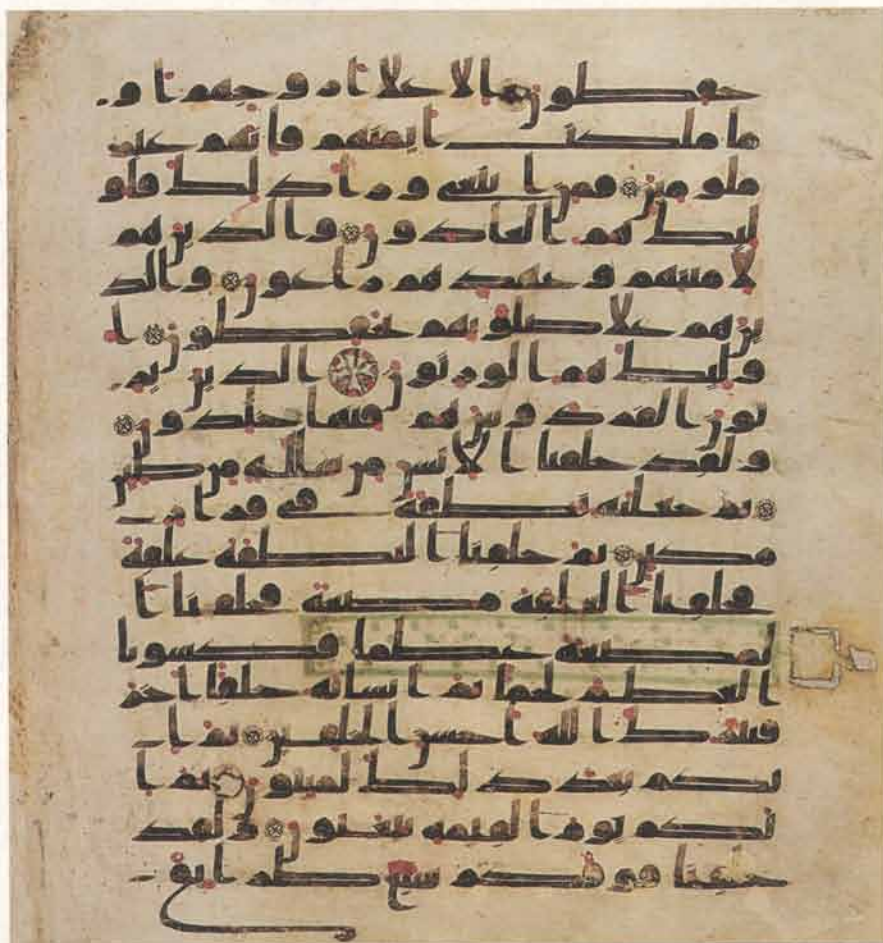 حفظون الا علا ازوجهم او
ما ملكت ايمنهم فانهم غير
ملومين فمن ابتغى ورا ذلك فاو
ليك هم العادون والذين هم
لامنتهم وعهدهم راعون والذ
ين هم علا صلوتهم يحفظون ا
وليك هم الورثون الذين ير
ثون الفردوس هم فيها خلدون
ولقد خلقنا الانسن من سللة من طين
ثم جعلنه نطفة في قرار
مكين ثم خلقنا النطفة علقة
فخلقنا العلقة مضغة فخلقنا ا
لمضغة عظما فكسونا
العظم لحما ثم انشانه خلقا اخر
فتبرك الله احسن الخلقين ثم ا
نكم بعد ذلك لميتون ثم ا
نكم يوم القيمة تبعثون ولقد
خلقنا فوقكم سبع طرايق